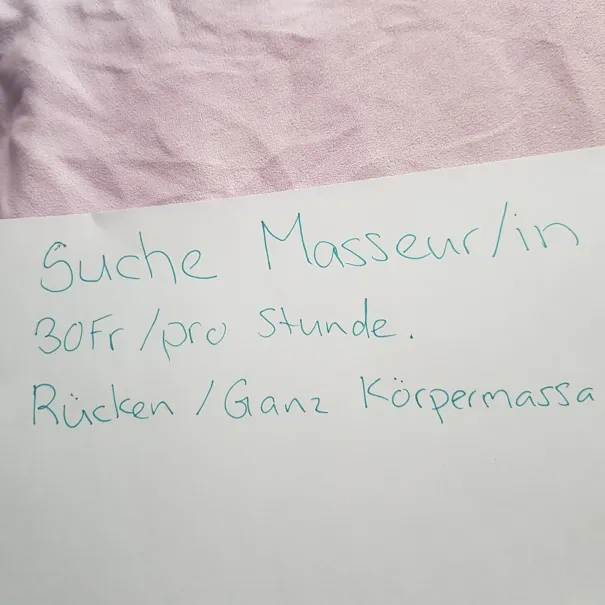 Suche Masseur/in
30Fr/pro Stunde.
Rücken/Ganz Körpermassa